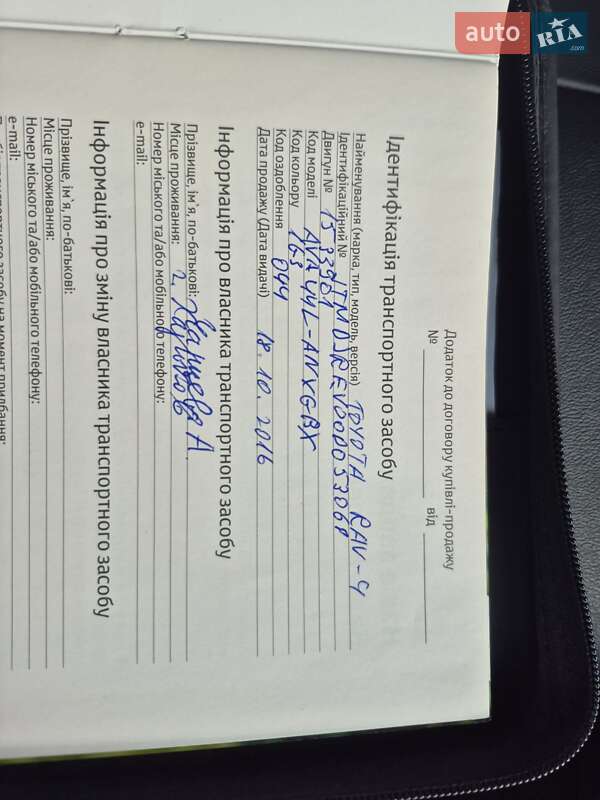 auto RIA .com
Додаток до договору купівлі-продажу
№ від
Ідентифікація транспортного засобу
Найменування (марка, тип, модель, версія) TOYOTA RAV-4
Ідентифікаційний №
Двигун № 1533981
Код моделі AVA44L-ANXGBX
Код кольору 1G3
Код оздоблення 044
Дата продажу (Дата видачі) 18.10.2016
Інформація про власника транспортного засобу
Прізвище, ім'я, по-батькові: А.
Місце проживання: г. Харьков
Номер міського та/або мобільного телефону:
e-mail:
Інформація про зміну власника транспортного засобу
Прізвище, ім'я, по-батькові:
Місце проживання:
Номер міського та/або мобільного телефону:
e-mail: